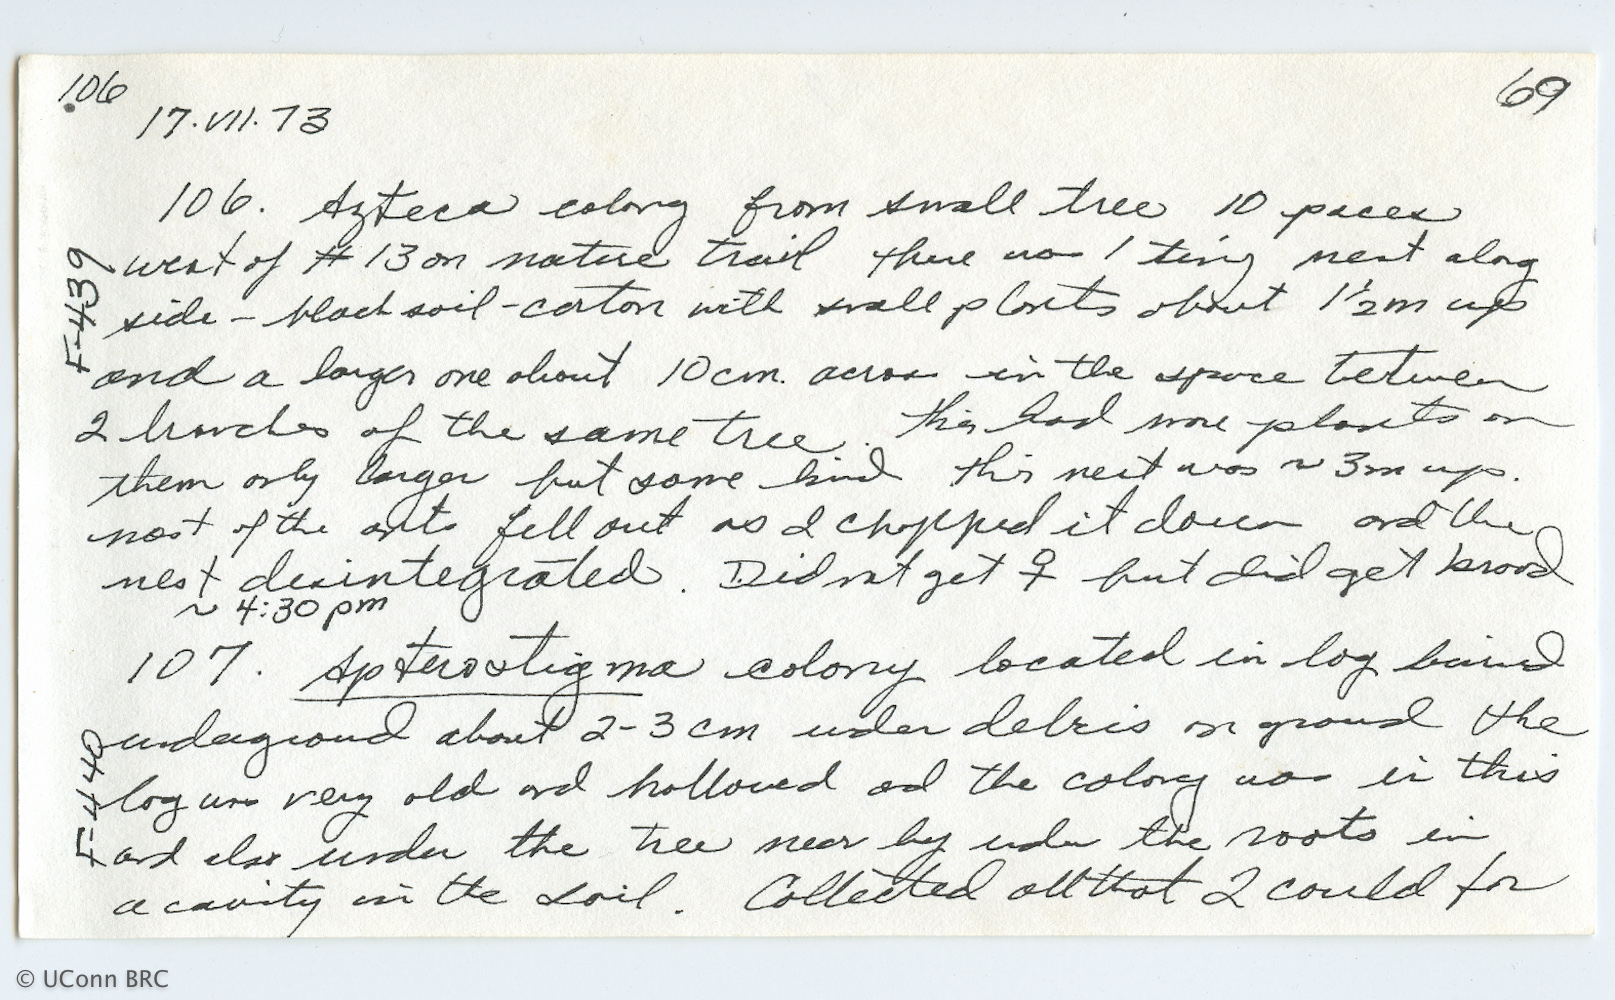 106
69
17.VII.73
106. Azteca colony from small tree 10 paces
west of #13 on nature trail there was 1 tiny nest along
side - black soil-carton with small plants about 1½m up
F-439
and a larger one about 10cm. across in the space between
2 branches of the same tree. This had more plants on
them only larger but same kind this nest was ~ 3m up.
most of the ants fell out as I chopped it down and the
nest desintegrated. Did not get ♀ but did get brood
~ 4:30 pm
107. Apterostigma colony located in log buried
underground about 2-3 cm under debris on ground the
F-440
log was very old and hollowed and the colony was in this
and also under the tree near by under the roots in
a cavity in the soil. Collected all that I could for
© UConn BRC